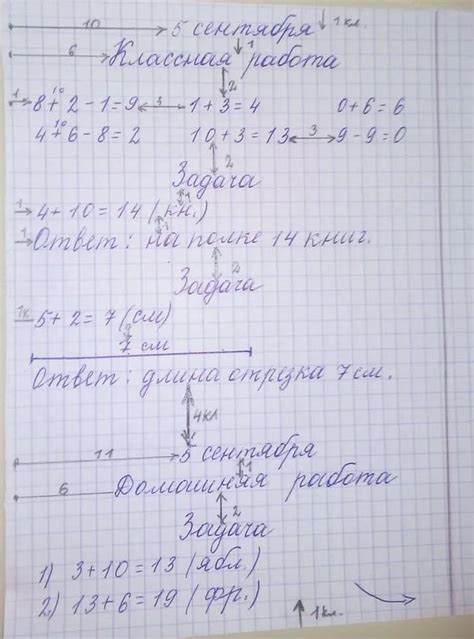 10 5 сентября 1 кл.
6 Классная работа 1
2
1 8 + 2 - 1 = 9 3 1 + 3 = 4 0 + 6 = 6
10
4 + 6 - 8 = 2 10 + 3 = 13 3 9 - 9 = 0
10
2
Задача
1
1 4 + 10 = 14 (кн.)
1 Ответ: на полке 14 книг.
2
Задача
1к 5 + 2 = 7 (см)
7 см
Ответ: длина отрезка 7 см.
4 кл
11 5 сентября
1
6 Домашняя работа
2
Задача
1) 3 + 10 = 13 (ябл.)
2) 13 + 6 = 19 (фр.)
1 кл.